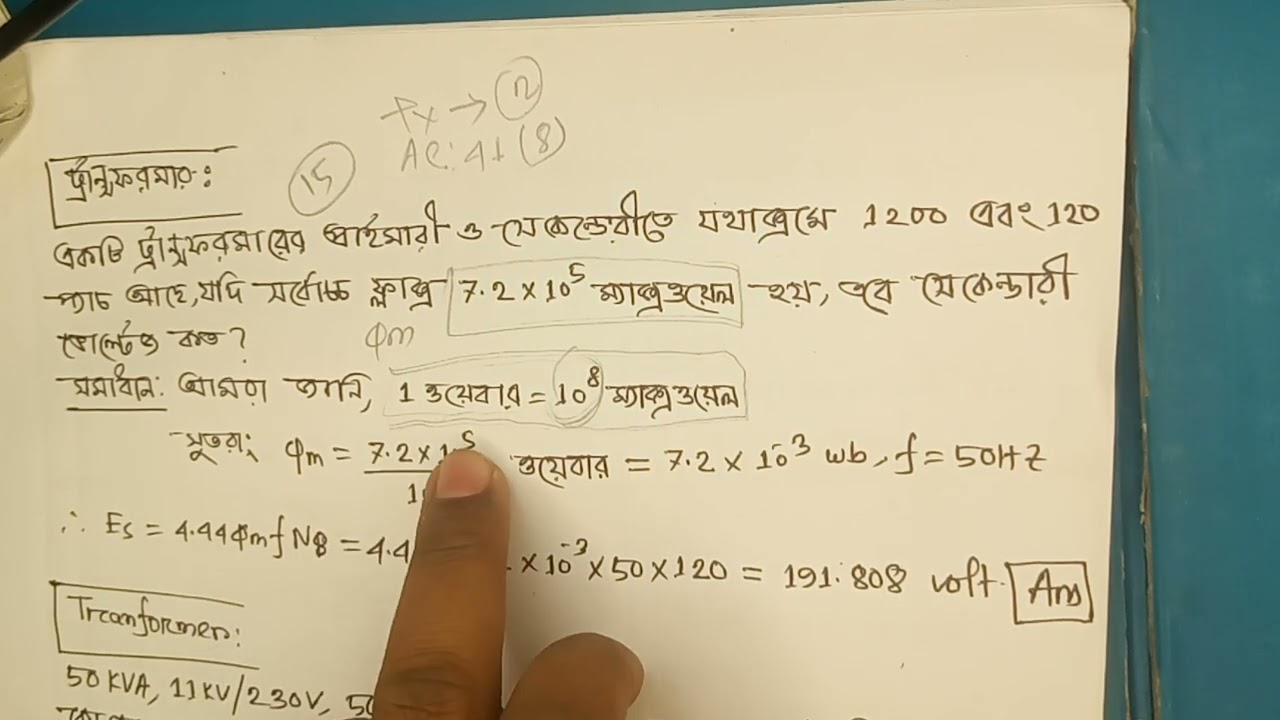 Px → 12
AC: 41 (8)
ট্রান্সফরমার:
15
একটি ট্রান্সফরমারের প্রাইমারী ও সেকেন্ডেরীতে যথাক্রমে 1200 এবং 120
প্যাচ আছে, যদি সর্বোচ্চ ফ্লাক্স 7.2 × 10⁵ ম্যাক্সওয়েল হয়, তবে সেকেন্ডারী
ভোল্টেজ কত?
φm
সমাধান: আমরা জানি, 1 ওয়েবার = 10⁸ ম্যাক্সওয়েল
সুতরাং φm = 7.2 × 1 ⁵ ওয়েবার = 7.2 × 10⁻³ wb, f = 50HZ
∴ Es = 4.44φmfNs = 4.4 × 10⁻³ × 50 × 120 = 191.808 volt. Ans
Trcanformer:
50 KVA, 11KV/230V, 50